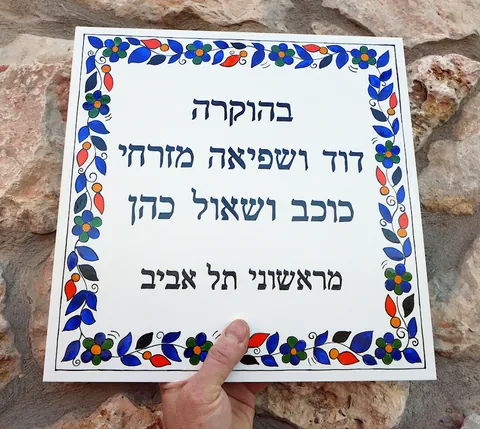 בהוקרה
דוד ושפיאה מזרחי
כוכב ושאול כהן
מראשוני תל אביב